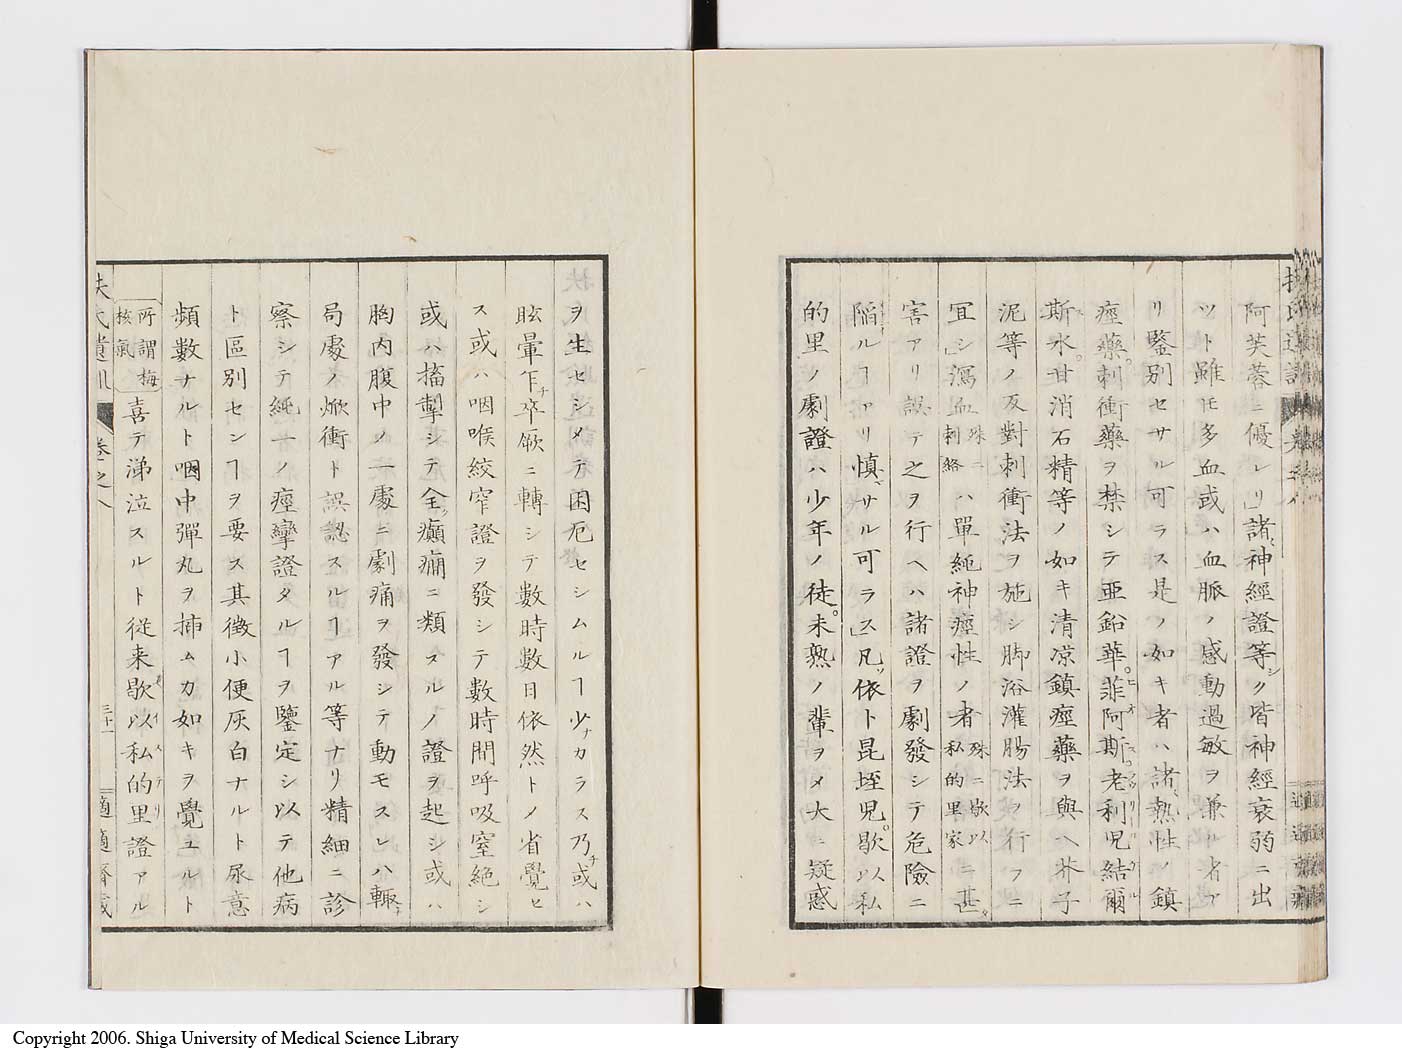 阿芙蓉ニ優レリ」諸神經證等シク皆神經衰弱ニ出
ツト雖ㇳモ多血或ハ血脈ノ感動過敏ヲ兼ル者ア
リ鑒別セサル可ラス是ノ如キ者ハ諸熱性ノ鎮
痙藥。刺衝藥ヲ禁シテ亜鉛華。菲阿斯。老利児結爾
斯水。甘消石精等ノ如キ清凉鎮痙藥ヲ與ヘ芥子
泥等ノ反對刺衝法ヲ施シ脚浴灌腸法ヲ行フニ
冝シ」瀉血殊ニ刺絡ハ單純神痙性ノ者殊ニ歇以私的里家ニ甚タ
害アリ誤テ之ヲ行ヘハ諸證ヲ劇發シテ危險ニ
陷ルヿアリ慎マサル可ラス」凡ソ依ト昆垤児。歇以私
的里ノ劇證ハ少年ノ徒。未熟ノ輩ヲメ大ニ疑惑
ヲ生セシメテ困厄セシムルヿ少ナカラス乃チ或ハ
眩暈乍チ卒厥ニ轉シテ數時數日依然トメ省覺セ
ス或ハ咽喉絞窄證ヲ發シテ數時間呼吸窒絶シ
或ハ搐掣シテ全ク癲癎ニ類スルノ證ヲ起シ或ハ
胸内腹中ノ一處ニ劇痛ヲ發シテ動モスレハ輙チ
局處ノ焮衝ト誤認スルヿアル等ナリ精細ニ診
察シテ純一ノ痙攣證タルヿヲ鑒定シ以テ他病
ト區別センヿヲ要ス其徴小便灰白ナルト尿意
頻數ナルト咽中彈丸ヲ挿ムカ如キヲ覺ユルト
所謂梅核氣喜テ涕泣スルト従来歇以私的里證アル
卷之八
三十一
適適齋藏
Copyright 2006. Shiga University of Medical Science Library